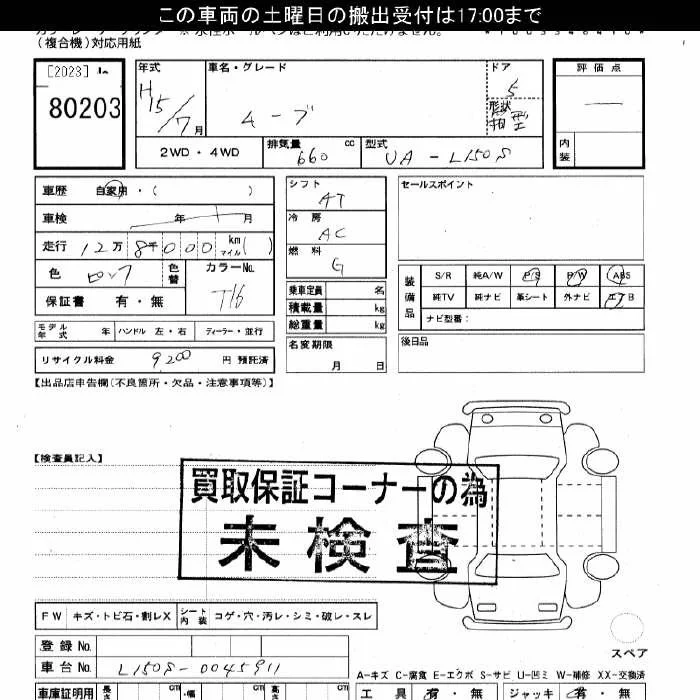 この車両の土曜日の搬出受付は17:00まで
(複合機)対応用紙
[2023]
80203
年式
H15/7月
車名・グレード
ムーブ
ドア
5
形状
箱型
評価点
内装
2WD・4WD
排気量
660 cc
型式
UA-L150S
車歴 自家用・( )
車検 年 月
走行 12万8千000 km マイル ( )
色
色替
カラーNo.
T16
保証書 有・無
シフト
AT
冷房
AC
燃料
G
セールスポイント
装備品
S/R 純A/W P/S P/W ABS
純TV 純ナビ 革シート 外ナビ エアB
ナビ型番:
乗車定員 名
積載量 kg
総重量 kg
モデル年式 年 ハンドル 左・右 ディーラー・並行
名変期限
月 日
後日品
リサイクル料金 9200 円 預託済
【出品店申告欄(不良箇所・欠品・注意事項等)】
【検査員記入】
買取保証コーナーの為
未検査
FW キズ・トビ石・割レX シート内装 コゲ・穴・汚レ・シミ・破レ・スレ
登録No.
車台No. L150S-0045911
スペア
A-キズ C-腐食 E-エクボ S-サビ U-凹ミ W-補修 XX-交換済
車庫証明用 長さ cm 幅 cm 高さ cm
工具 有・無 ジャッキ 有・無